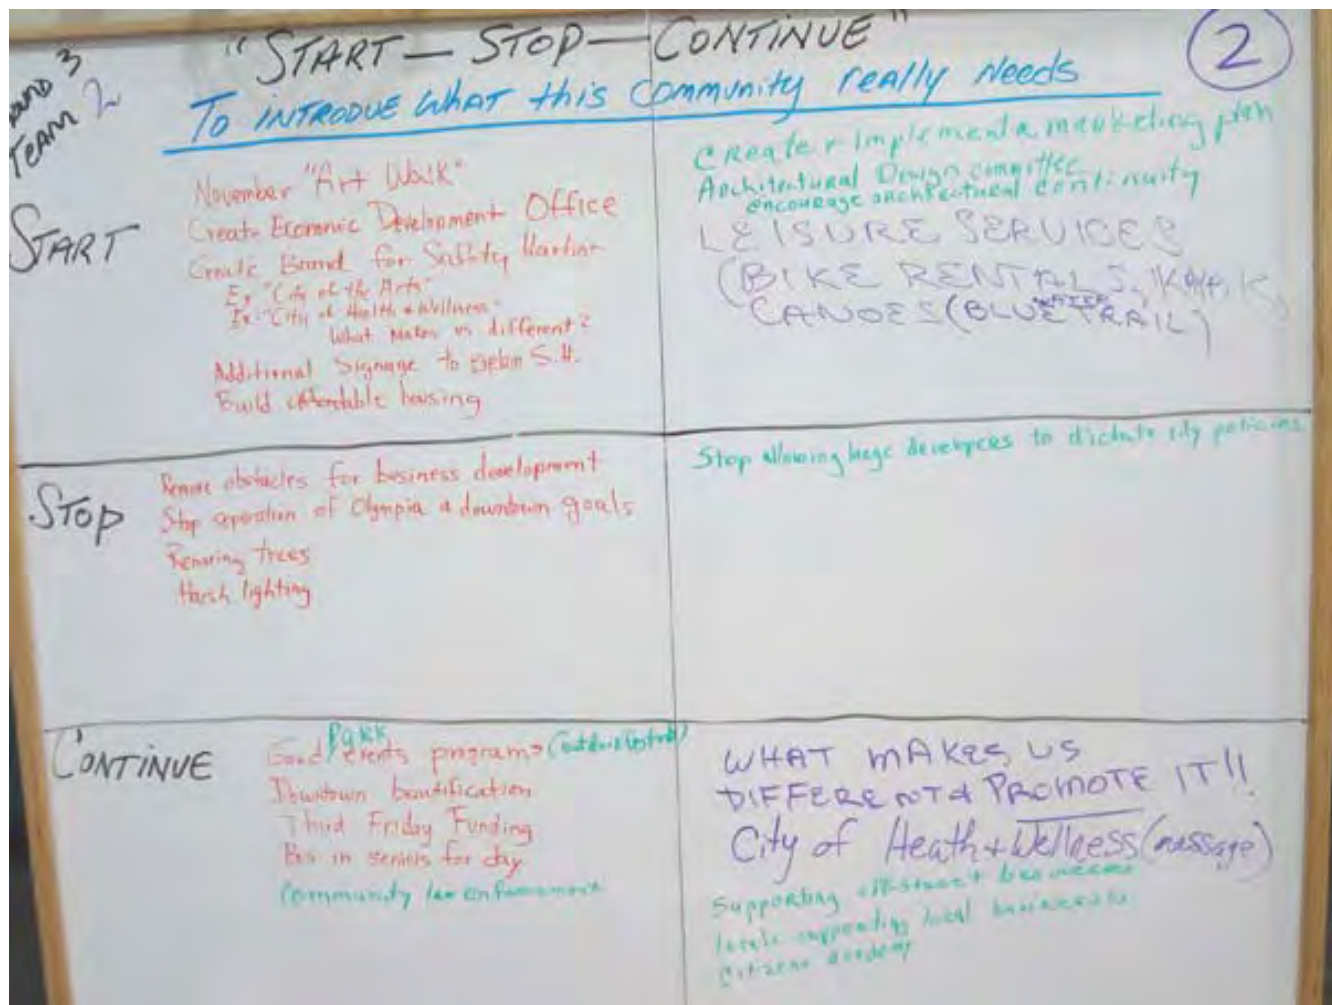 "START — STOP — CONTINUE"
2
3
TEAM 2
To INTRODUE WHAT this Community really Needs
START
November "Art Walk"
Create Economic Development Office
Create Brand for Safety Harbor
Ex "City of the Arts"
Ex "City of Health + Wellness"
What makes us different?
Additional Signage to S.H.
Build affordable housing
Create + Implement a marketing plan
Architectural Design committee
encourage architectural continuity
LEISURE SERVICES
(BIKE RENTALS, KAYAK,
CANOES (BLUE WATER TRAIL)
STOP
Remove obstacles for business development
Stop operation of Olympia & downtown goals
Removing trees
Harsh lighting
Stop allowing large developers to dictate city policies
CONTINUE
Good Park events programs
Downtown beautification
Third Friday Funding
in seniors for day
Community law enforcement
WHAT MAKES US
DIFFERENT & PROMOTE IT!!
City of Heath + Wellness (massage)
Supporting off-street businesses
locals supporting local businesses
Citizens academy